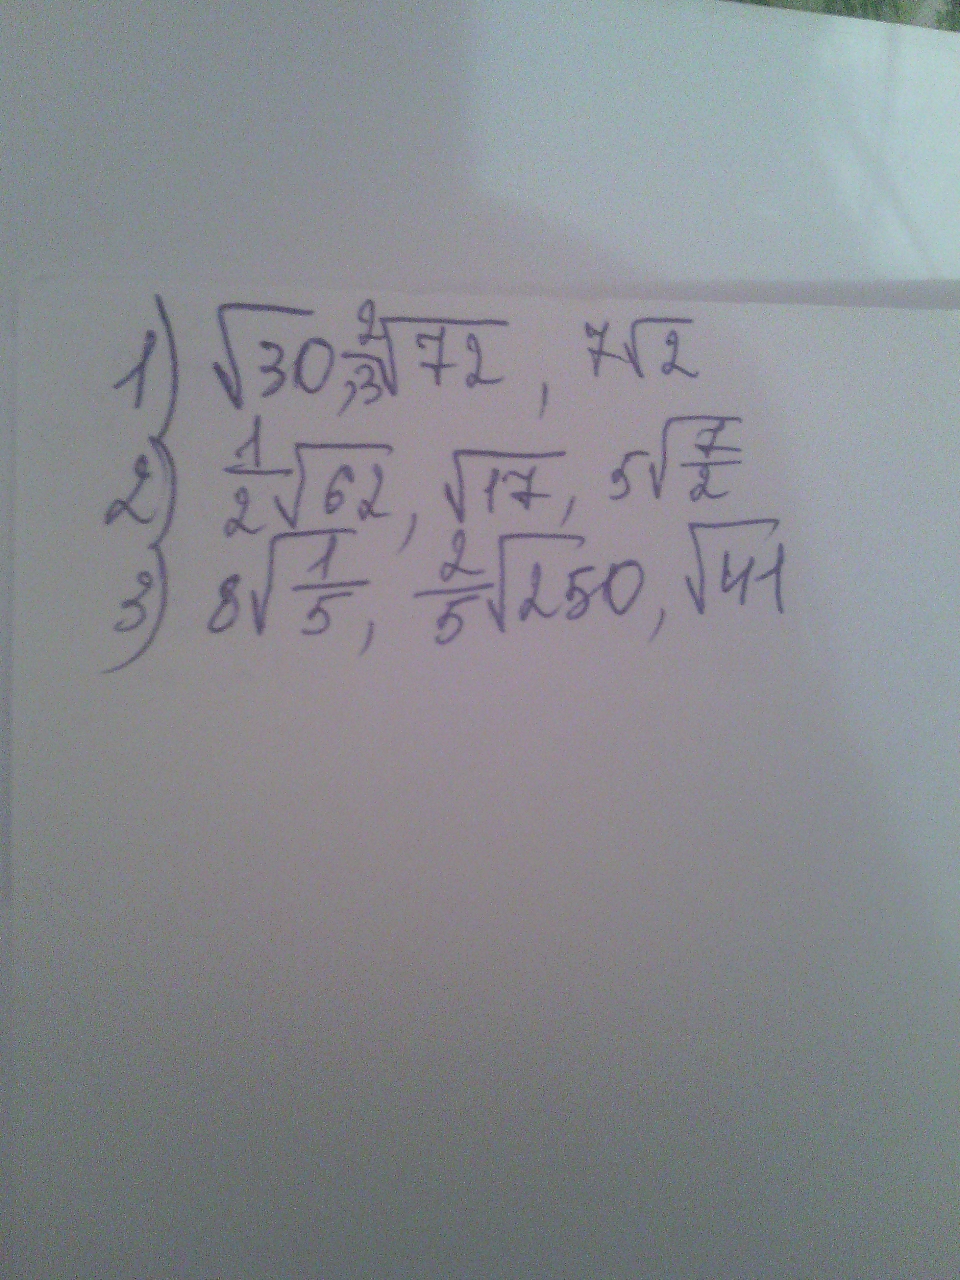 1) √30, 2/3√72, 7√2
2) 1/2√62, √17, 5√7/2
3) 8√1/5, 2/5√250, √41